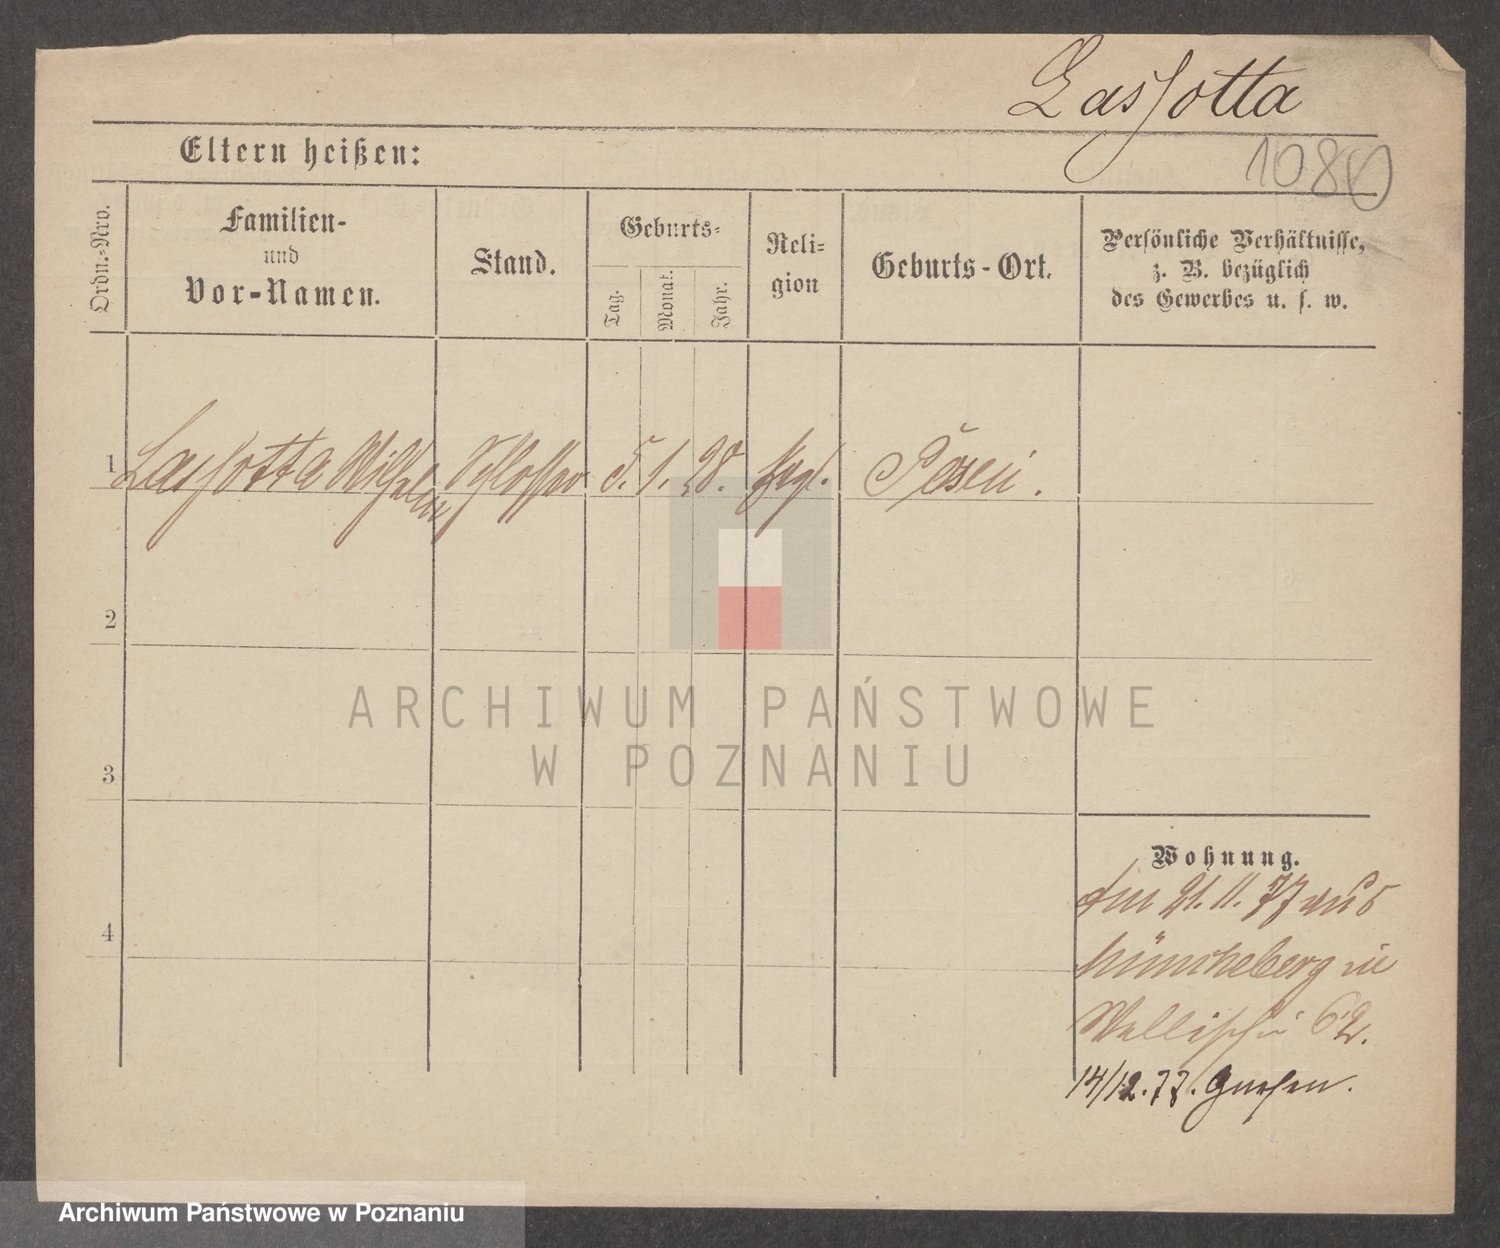 Lassotta
1080
Eltern heißen:
Ordn.-Nro.
Familien-
und
Vor-Namen.
Stand.
Geburts-
Tag.
Monat.
Jahr.
Reli-
gion
Geburts-Ort.
Persönliche Verhältnisse,
z. B. bezüglich
des Gewerbes u. s. w.
1 Lassotta Wilhelm Schlosser 5. 1. 28. Posen.
2
3
4
ARCHIWUM PAŃSTWOWE
W POZNANIU
Wohnung.
den 21. 11. 77 aus
Müncheberg in
Wallischei 62.
14/12.77. Gnesen.
Archiwum Państwowe w Poznaniu